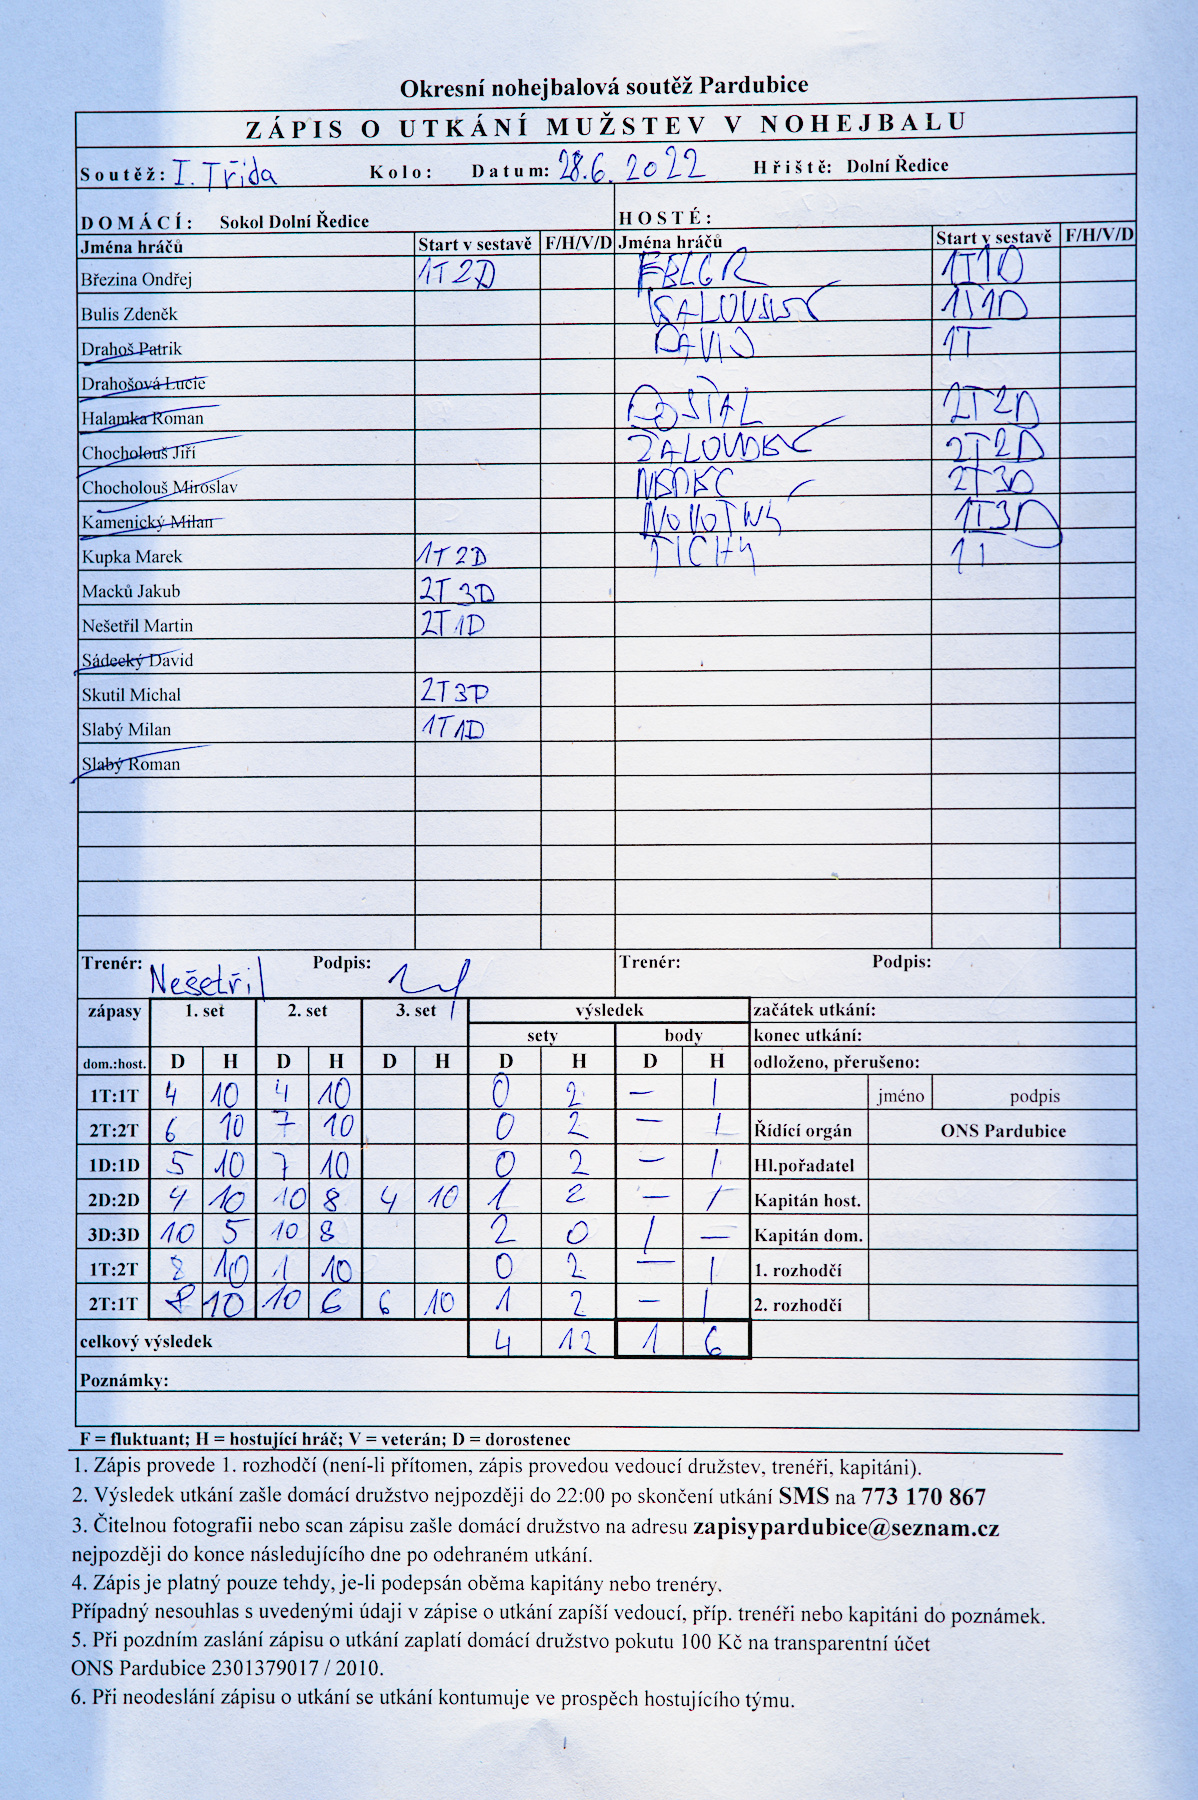 Okresní nohejbalová soutěž Pardubice
ZÁPIS O UTKÁNÍ MUŽSTEV V NOHEJBALU
Soutěž: I. Třída Kolo: Datum: 28.6. 2022 Hřiště: Dolní Ředice
DOMÁCÍ: Sokol Dolní Ředice HOSTÉ:
Jména hráčů Start v sestavě F/H/V/D Jména hráčů Start v sestavě F/H/V/D
Březina Ondřej 1T 2D 1T1D
Bulis Zdeněk 1T1D
Drahoš Patrik DAVID 1T
Drahošová Lucie
Halamka Roman DOSTAL 2T2D
Chocholouš Jiří ŽALOUDEK 2T2D
Chocholouš Miroslav 2T3D
Kamenický Milan NOVOTNÝ 1T3D
Kupka Marek 1T 2D TICHÝ 1T
Macků Jakub 2T 3D
Nešetřil Martin 2T 1D
Sádecký David
Skutil Michal 2T 3D
Slabý Milan 1T 1D
Slabý Roman
Trenér: Nešetřil Podpis: Trenér: Podpis:
zápasy 1. set 2. set 3. set výsledek začátek utkání:
sety body konec utkání:
dom.:host. D H D H D H D H D H odloženo, přerušeno:
1T:1T 4 10 4 10 0 2 – 1 jméno podpis
2T:2T 6 10 7 10 0 2 – 1 Řídící orgán ONS Pardubice
1D:1D 5 10 7 10 0 2 – 1 Hl.pořadatel
2D:2D 4 10 10 8 4 10 1 2 – 1 Kapitán host.
3D:3D 10 5 10 8 2 0 1 – Kapitán dom.
1T:2T 8 10 1 10 0 2 – 1 1. rozhodčí
2T:1T 8 10 10 6 6 10 1 2 – 1 2. rozhodčí
celkový výsledek 4 12 1 6
Poznámky:
F = fluktuant; H = hostující hráč; V = veterán; D = dorostenec
1. Zápis provede 1. rozhodčí (není-li přítomen, zápis provedou vedoucí družstev, trenéři, kapitáni).
2. Výsledek utkání zašle domácí družstvo nejpozději do 22:00 po skončení utkání SMS na 773 170 867
3. Čitelnou fotografii nebo scan zápisu zašle domácí družstvo na adresu zapisypardubice@seznam.cz
nejpozději do konce následujícího dne po odehraném utkání.
4. Zápis je platný pouze tehdy, je-li podepsán oběma kapitány nebo trenéry.
Případný nesouhlas s uvedenými údaji v zápise o utkání zapíší vedoucí, příp. trenéři nebo kapitáni do poznámek.
5. Při pozdním zaslání zápisu o utkání zaplatí domácí družstvo pokutu 100 Kč na transparentní účet
ONS Pardubice 2301379017 / 2010.
6. Při neodeslání zápisu o utkání se utkání kontumuje ve prospěch hostujícího týmu.